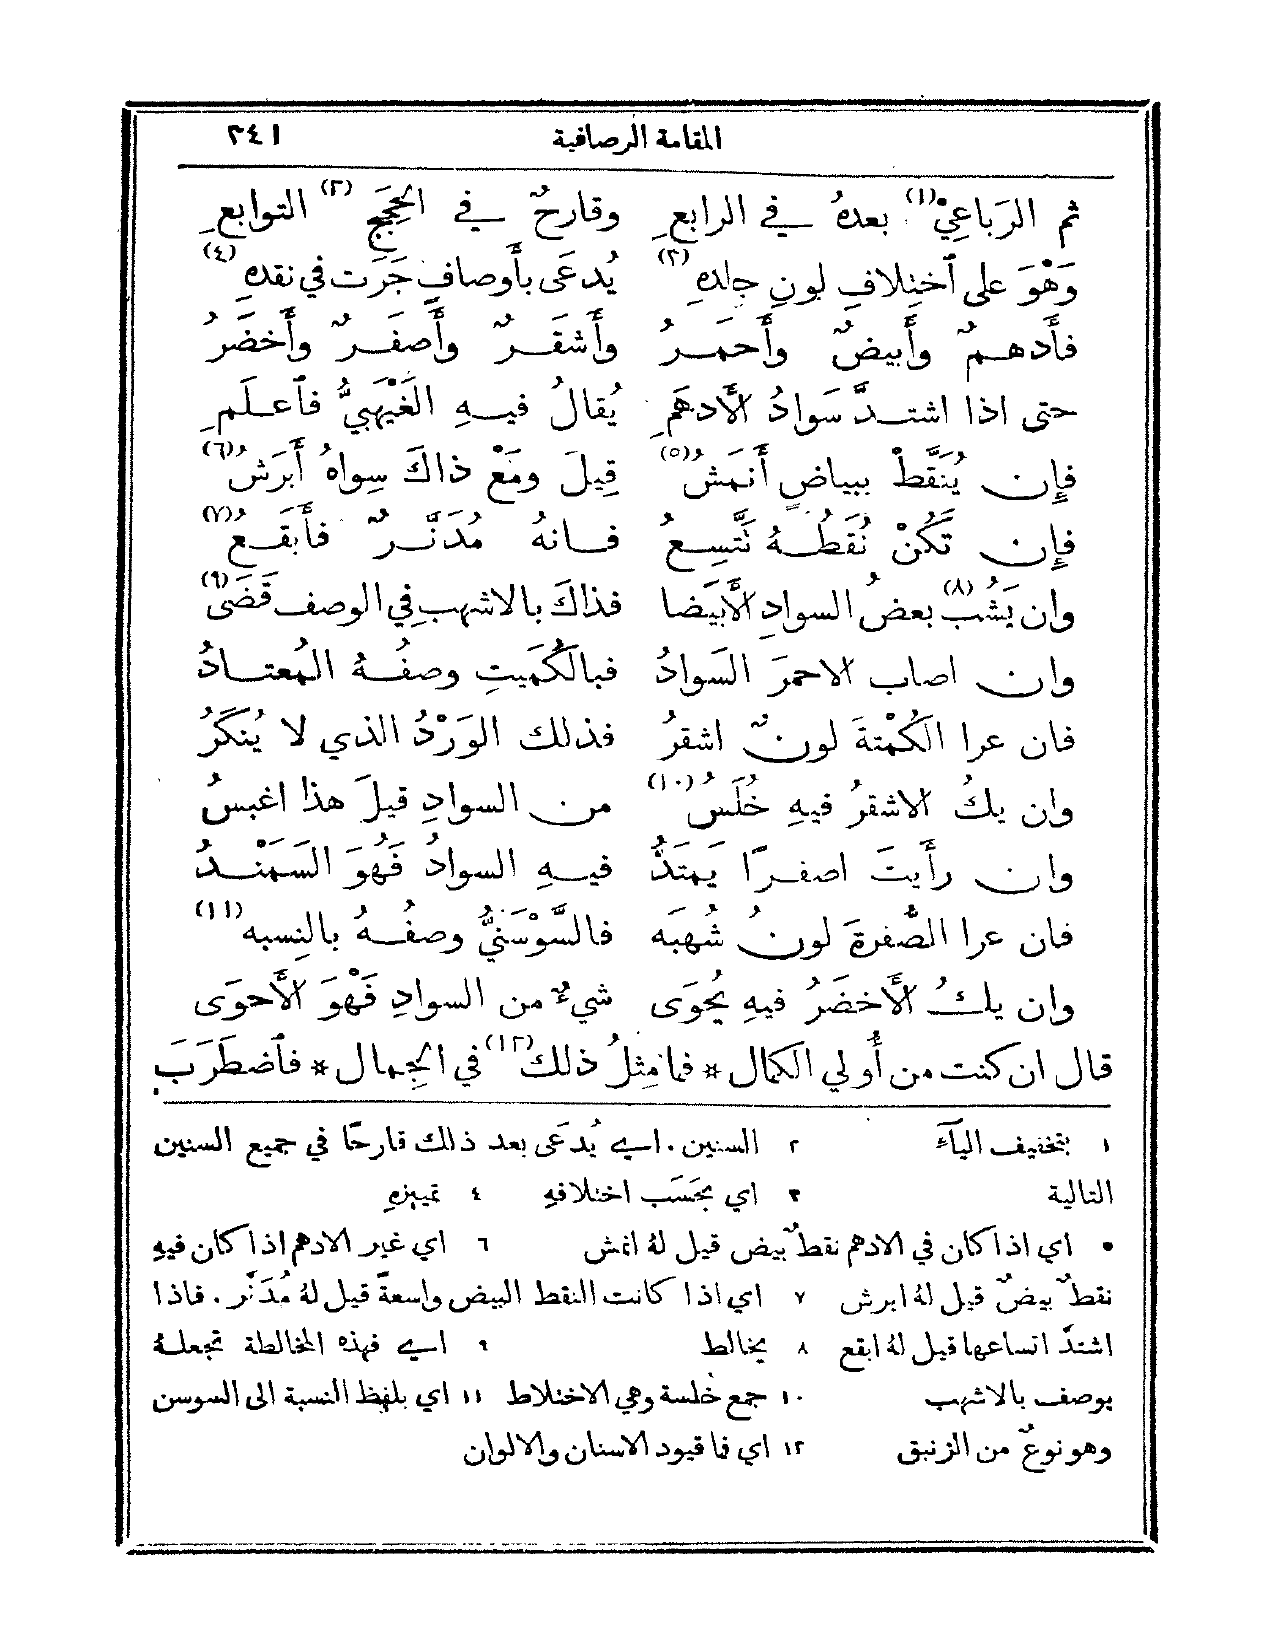 المقامة الرصافية ٢٤١
ثم الرَباعِيْ(١) بعدهُ في الرابعِ وقارحٌ في الحِجَجِ(٢) التوابعِ
وَهْوَ على ٱختِلافِ لونِ جلدهِ(٣) يُدعَى بأَوصافٍ جَرَت في نقدهِ(٤)
فأَدهمٌ وأَبيضٌ وأَحمَرُ وأَشقَرٌ وأَصفَرٌ وأَخضَرُ
حتى اذا اشتدَّ سَوادُ الأَدهَمِ يُقالُ فيهِ الغَيْهَبيُّ فٱعلَمِ
فإِن يُنقَّطْ ببياضٍ أَنمَشُ(٥) قِيلَ ومَعْ ذاكَ سِواهُ أَبرَشُ(٦)
فإِن تَكُنْ نُقَطهُ تَتَّسِعُ فانهُ مُدَنَّرٌ فأَبقَعُ(٧)
وان يَشُبْ(٨) بعضُ السوادِ الأَبيَضا فذاكَ بالاشهبِ في الوصف قَضَى(٩)
وان اصاب الاحمرَ السَوادُ فبالكُمَيتِ وصفُهُ المُعتادُ
فان عرا الكُمْتةَ لونٌ اشقرُ فذلك الوَرْدُ الذي لا يُنكَرُ
وان يكُ الاشقرُ فيهِ خُلَسُ(١٠) من السوادِ قيلَ هذا اغبسُ
وان رأَيتَ اصفرًا يَمتدُّ فيهِ السوادُ فَهُوَ السَمَنْدُ
فان عرا الصُّفرةَ لونُ شُهبه فالسَّوْسَنيُّ وصفُهُ بالنِسبه(١١)
وان يكُ الأَخضَرُ فيهِ يُحوَى شيءٌ من السوادِ فَهْوَ الأَحوَى
قال ان كنت من أُولي الكمال * فما مِثلُ ذلك(١٢) في الجِمال * فٱضطَرَبَ
١ بتخفيف اليآء ٢ السنين. اي يُدعَى بعد ذلك قارحًا في جميع السنين
التالية ٣ اي بحَسَب اختلافهِ ٤ تمييزهِ
٥ اي اذا كان في الادهم نقطٌ بيض قيل لهُ انمش ٦ اي غير الادهم اذا كان فيهِ
نقطٌ بيضٌ قيل لهُ ابرش ٧ اي اذا كانت النقط البيض واسعةً قيل لهُ مُدَنَّر. فاذا
اشتدَّ اتساعها قيل لهُ ابقع ٨ يخالط ٩ اي فهذه المخالطة تجعلهُ
يوصف بالاشهب ١٠ جمع خُلسة وهي الاختلاط ١١ اي بلفظ النسبة الى السوسن
وهو نوعٌ من الزنبق ١٢ اي فما قيود الاسنان والالوان